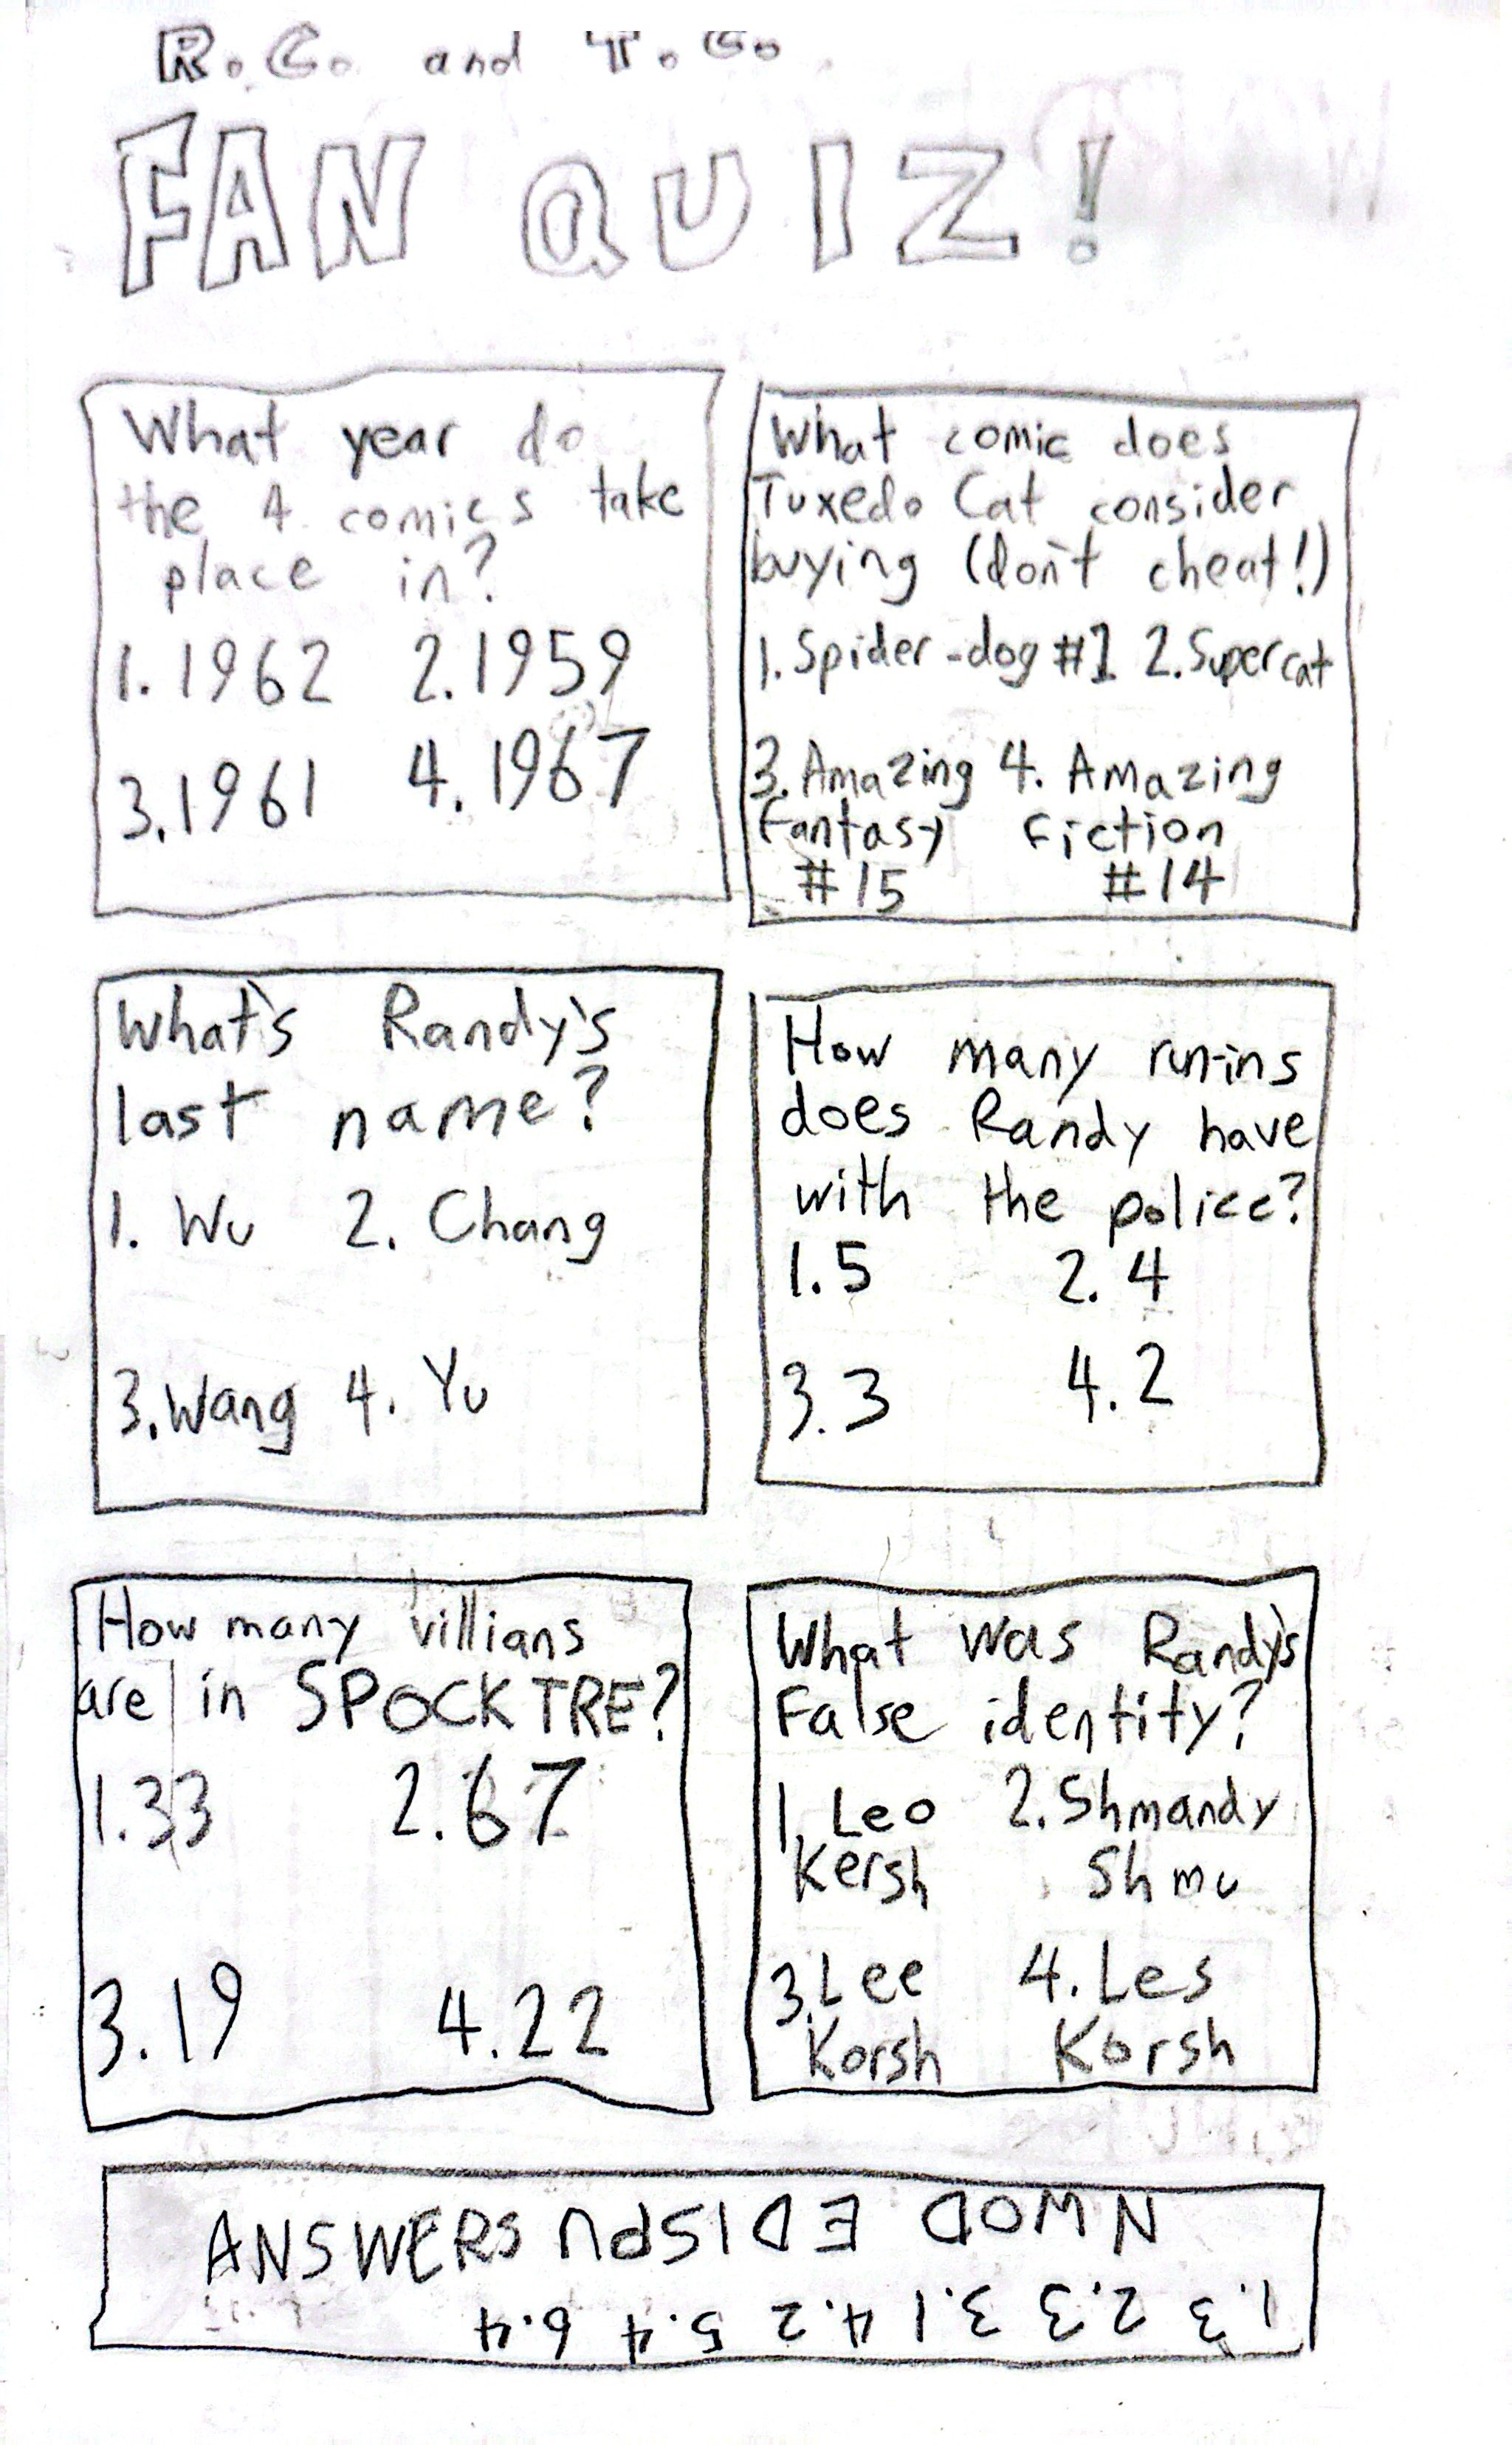 R.C. and T.C.
FAN QUIZ!
What year do
the 4 comics take
place in?
1.1962 2.1959
3.1961 4.1967
What comic does
Tuxedo Cat consider
buying (don't cheat!)
1.Spider-dog #1 2.Supercat
3.Amazing 4. Amazing
Fantasy Fiction
#15 #14
What's Randy's
last name?
1. Wu 2. Chang
3.Wang 4. Yu
How many run-ins
does Randy have
with the police?
1.5 2.4
3.3 4.2
How many villians
are in SPOCKTRE?
1.33 2.67
3.19 4.22
What was Randy's
False identity?
1. Leo 2.Shmandy
Kersh Shmu
3.Lee 4.Les
Korsh Korsh
ANSWERS UPSIDE DOWN
1.3 2.3 3.1 4.2 5.4 6.4